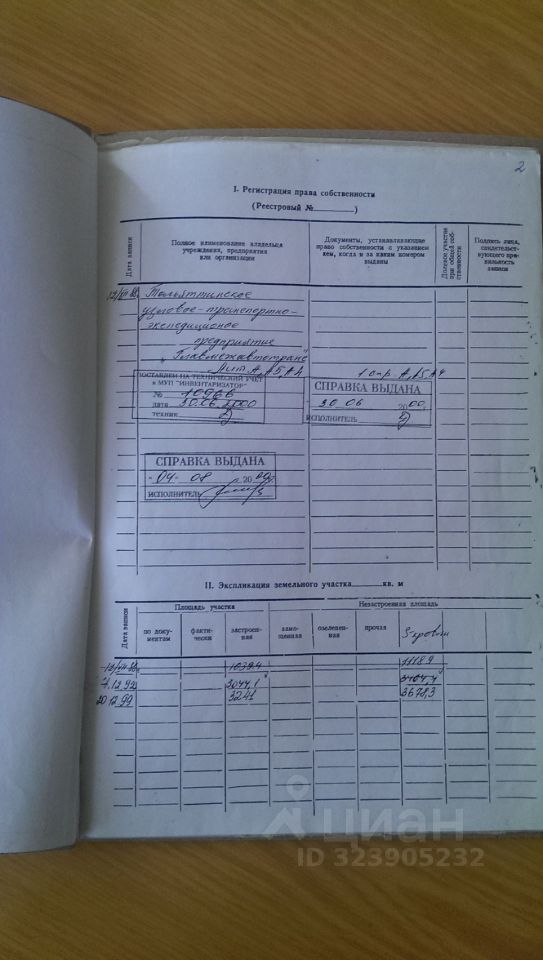 2
I. Регистрация права собственности
(Реестровый № )
Дата записи
Полное наименование владельца учреждения, предприятия или организации
Документы, устанавливающие право собственности с указанием кем, когда и за каким номером выданы
Долевое участие при общей собственности
Подпись лица, свидетельствующего правильность записи
Тольяттинское
узловое-транспортно-
экспедиционое
предприятие
"Главмежавтотранс"
Лит. А, А5, А4
1 стр. А, А5, А4
ПОСТАВЛЕН НА ТЕХНИЧЕСКИЙ УЧЕТ
в МУП "ИНВЕНТАРИЗАТОР"
№ 10966
дата 30.06.2000
техник
СПРАВКА ВЫДАНА
30 06 2000
ИСПОЛНИТЕЛЬ
СПРАВКА ВЫДАНА
04 08 20
ИСПОЛНИТЕЛЬ
II. Экспликация земельного участка кв. м
Дата записи
Площадь участка
Незастроенная площадь
по документам
фактически
застроенная
замощенная
озелененная
прочая
1039.4
1118.9
7.12.92
3044.1
20.12.99
3241
3678,3
циан
ID 323905232